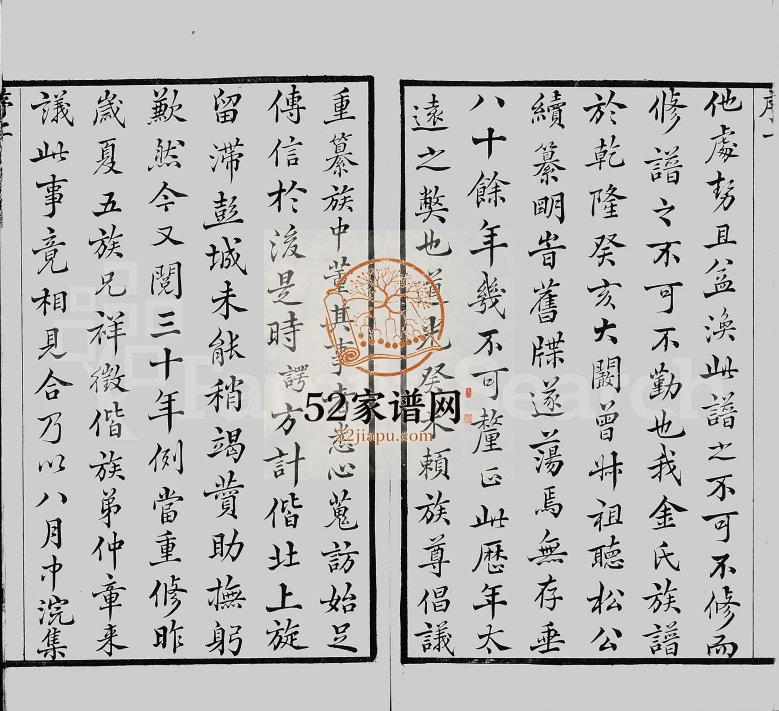 序一
他處勢且益渙此譜之不可不修而
修譜之不可不勤也我金氏族譜
於乾隆癸亥大闕曾叔祖聽松公
續纂明峕舊牒遂蕩焉無存垂
八十餘年幾不可釐正此歷年太
遠之弊也道光癸未賴族尊倡議
重纂族中董其事者悉心蒐訪始足
傳信於後是時諤方計偕北上旋
留滯彭城未能稍竭贊助撫躬
歉然今又閱三十年例當重修昨
歲夏五族兄祥徵偕族弟仲章來
議此事竟相見合乃以八月中浣集
序二
52家谱网
52jiapu.com